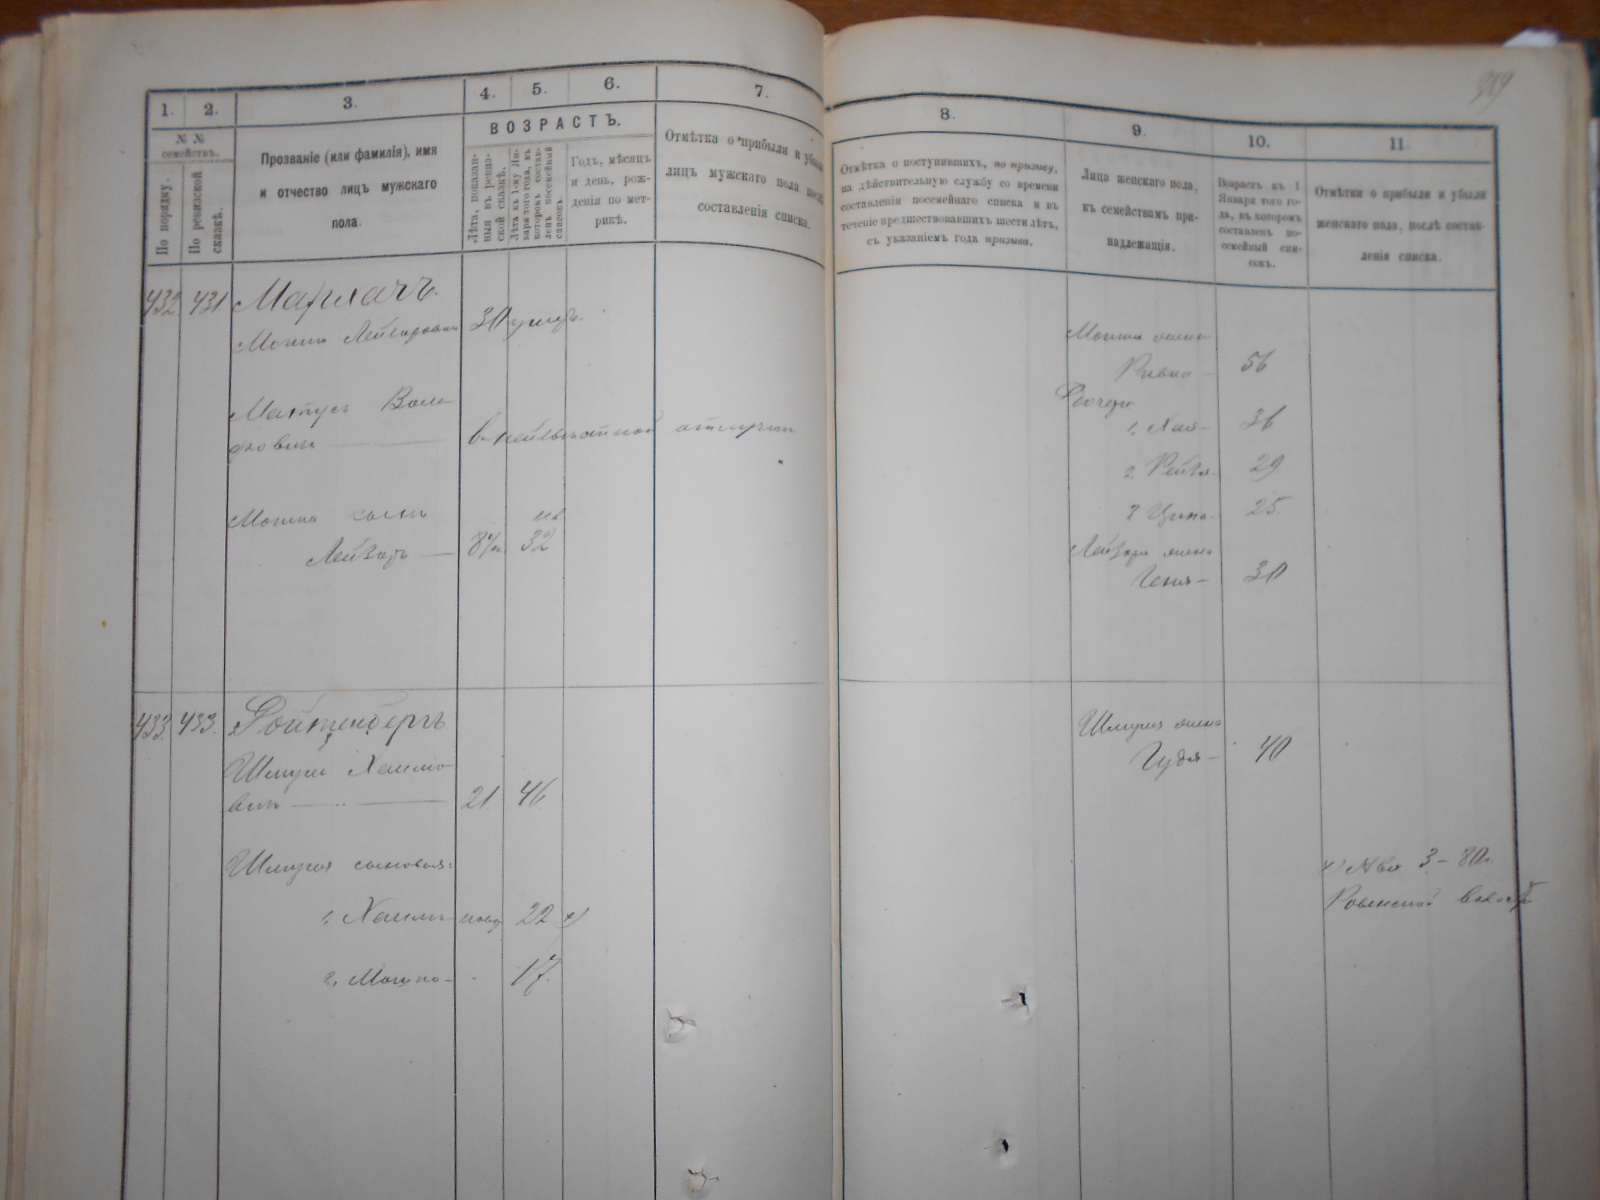 1. 2. 3. 4. 5. 6. 7.
№ № семействъ.
По порядку.
По ревизской сказкѣ.
Прозваніе (или фамилія), имя
и отчество лицъ мужскаго
пола.
ВОЗРАСТЪ.
Лѣта, показан-
ныя въ ревиз-
ской сказкѣ.
Лѣта къ 1-му Ян-
варя того года, въ
которомъ состав-
ленъ посемейный
списокъ.
Годъ, мѣсяцъ
и день, рож-
денія по мет-
рикѣ.
Отмѣтка о прибыли и убыли
лицъ мужскаго пола послѣ
составленія списка.
432 431
Мошко Лейзеровичъ 30 умеръ.
Матусъ
Мошко сынъ
Лейзоръ 32
433. 433. Ройтенбергъ
Шмуль Хаимо-
вичъ 21 46
Шмуля сыновья:
1. Хаимъ 22
2. Мошко 17.
989
8. 9. 10. 11.
Отмѣтка о поступившихъ, по призыву,
на дѣйствительную службу со времени
составленія посемейнаго списка и въ
теченіе предшествовавшихъ шести лѣтъ,
съ указаніемъ года призыва.
Лица женскаго пола,
къ семействамъ при-
надлежащія.
Возрастъ къ 1
Января того го-
да, въ которомъ
составленъ по-
семейный спи-
сокъ.
Отмѣтки о прибыли и убыли
женскаго пола, послѣ состав-
ленія списка.
Мошка жена
Ривка 56
Дочери
1. Хая 36
2 Рейзя 29
3 Ципа 25
Лейзора жена
Геня 30
Шмуля жена
Гудя 40
3 - 80г.
Ровенской